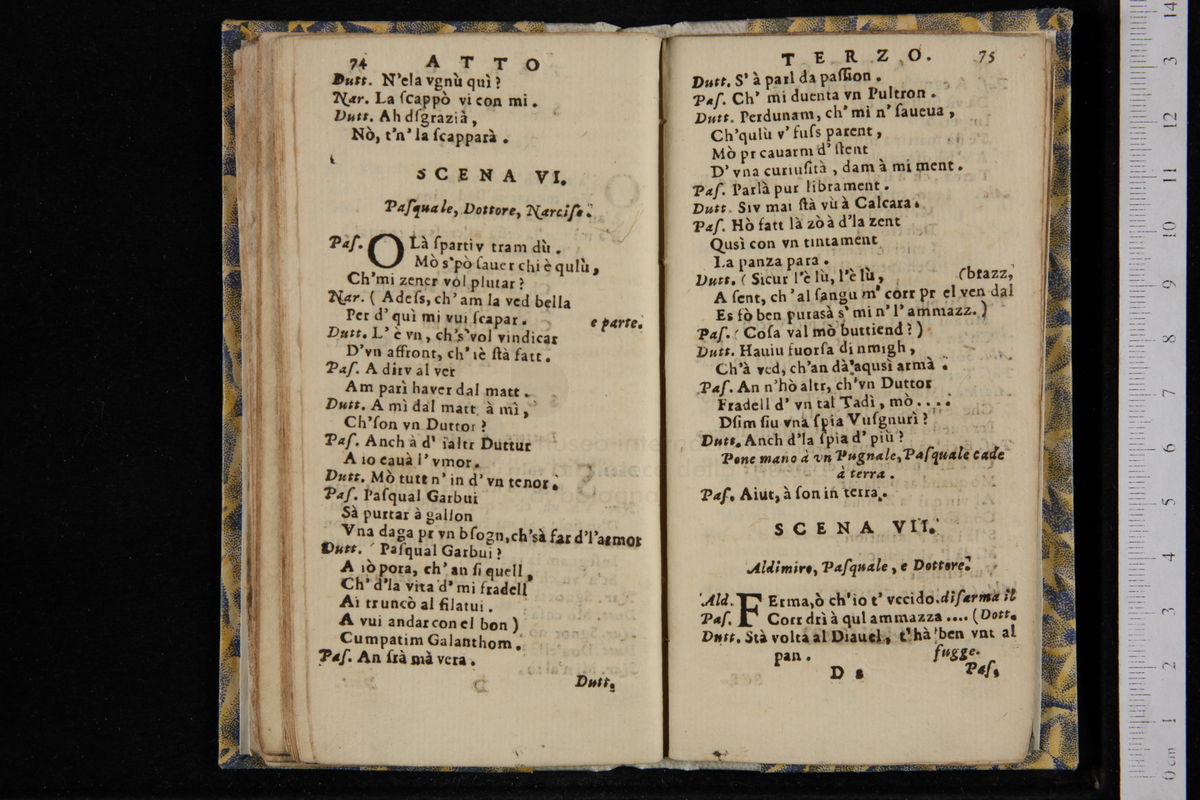 74 ATTO
Dutt. N'ela vgnù quì?
Nar. La ſcappò vi con mi.
Dutt. Ah dſgrazià,
Nò, t'n' la ſcapparà.
SCENA VI.
Paſquale, Dottore, Narciſo.
Paſ. OLà ſpartiv tram dù.
Mò s'pò ſauer chi è qulù,
Ch'mi zener vol plutar?
Nar. ( Adeſs, ch'am la ved bella
Per d' quì mi vui ſcapar. e parte.
Dutt. L' è vn, ch's'vol vindicar
D'vn affront, ch'iè ſtà fatt.
Paſ. A dirv al ver
Am parì haver dal matt.
Dutt. A mì dal matt, à mì,
Ch'ſon vn Duttor?
Paſ. Anch à d' ialtr Duttur
A io cauà l' vmor.
Dutt. Mò tutt n' in d' vn tenor.
Paſ. Paſqual Garbui
Sà purtar à gallon
Vna daga pr vn bſogn, ch'sà far d'l'armor
Dutt. ( Paſqual Garbui?
A iò pora, ch' an ſi quell,
Ch' d'la vita d' mi fradell
Ai truncò al filatui.
A vui andar con el bon )
Cumpatim Galanthom.
Paſ. An ſrà mà vera.
Dutt.
TERZO. 75
Dutt. S' à parl da paſſion.
Paſ. Ch' mi duenta vn Pultron.
Dutt. Perdunam, ch' mi n' ſaueua,
Ch'qulù v' fuſs parent,
Mò pr cauarm d' ſtent
D' vna curiuſità, dam à mi ment.
Paſ. Parlà pur librament.
Dutt. Siv mai ſtà vù à Calcara.
Paſ. Hò fatt là zò à d'la zent
Qusì con vn tintament
La panza para.
Dutt. ( Sicur l'è lù, l'è lù, (brazz,
A ſent, ch' al ſangu m' corr pr el ven dal
Es fò ben purasà s' mi n' l' ammazz. )
Paſ. ( Coſa val mò buttiend? )
Dutt. Hauiu fuorſa di nmigh,
Ch'à ved, ch'an dà aqusì armà.
Paſ. An n'hò altr, ch'vn Duttor
Fradell d' vn tal Tadì, mò....
Dſim ſiu vna ſpia Vuſgnurì?
Dutt. Anch d'la ſpia d' più?
Pone mano à vn Pugnale, Paſquale cade
à terra.
Paſ. Aiut, à ſon in terra.
SCENA VII.
Aldimiro, Paſquale, e Dottore.
Ald. FErma, ò ch'io t' vccido. diſarma il
Paſ. Corr drì à qul ammazza .... (Dott.
Dutt. Stà volta al Diauel, t'hà ben vnt al
pan. fugge.
D 2 Paſ,